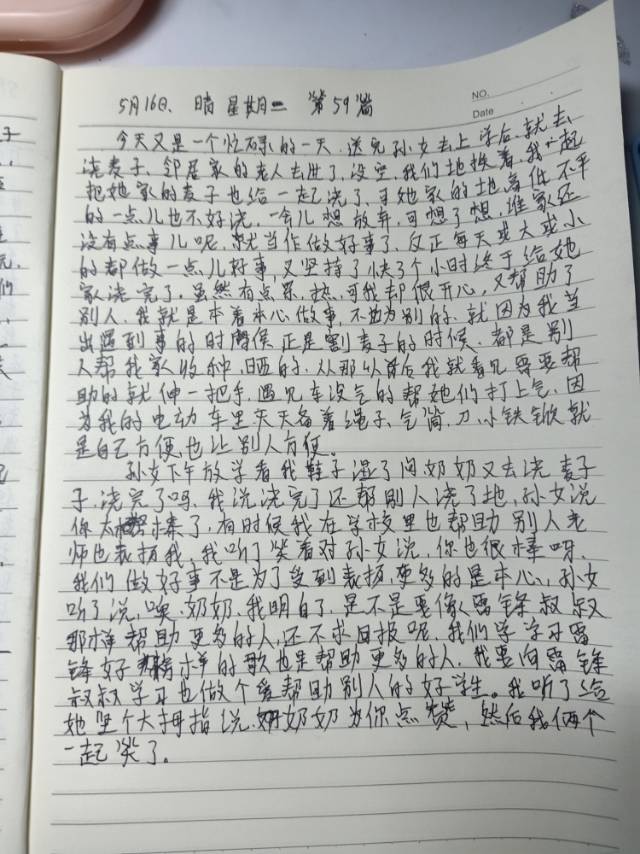 NO.
Date
5月16日、晴 星期二 第59篇
今天又是一个忙碌的一天，送完孙女去上学后，就去
浇麦子、邻居家的老人去世了，没空，我们地挨着，我一起
把她家的麦子也给一起浇了，可她家的地高低不平
的一点儿也不好浇，一会儿想放弃，可想了想，谁家还
没有点事儿呢，就当作做好事了，反正每天或大或小
的都做一点儿好事，又坚持了快3个小时终于给她
家浇完了。虽然有点累，热，可我却很开心，又帮助了
别人，我就是本着本心做事，不为别的，就因为我当
出遇到事的时候正是割麦子的时候，都是别
人帮我家收种，晒的，从那以后我就看见需要帮
助的就伸一把手，遇见车没气的帮她们打上气，因
为我的电动车里天天备着绳子、气筒，刀，小铁锨就
是自己方便，也让别人方便。
孙女下午放学看我鞋子湿了问奶奶又去浇麦子
子，浇完了吗，我说浇完了还帮别人浇了地，孙女说
你太棒了，有时候我在学校里也帮助别人老
师也表扬我，我听了笑着对孙女说，你也很棒呀，
我们做好事不是为了受到表扬，更多的是本心，孙女
听了说，噢，奶奶，我明白了，是不是要像雷锋叔叔
那样帮助更多的人，还不求回报呢，我们学学习雷
锋好榜样的歌也是帮助更多的人，我要向雷锋
叔叔学习也做个爱帮助别人的好学生。我听了给
她竖个大拇指说，奶奶为你点赞，然后我俩个
一起笑了。